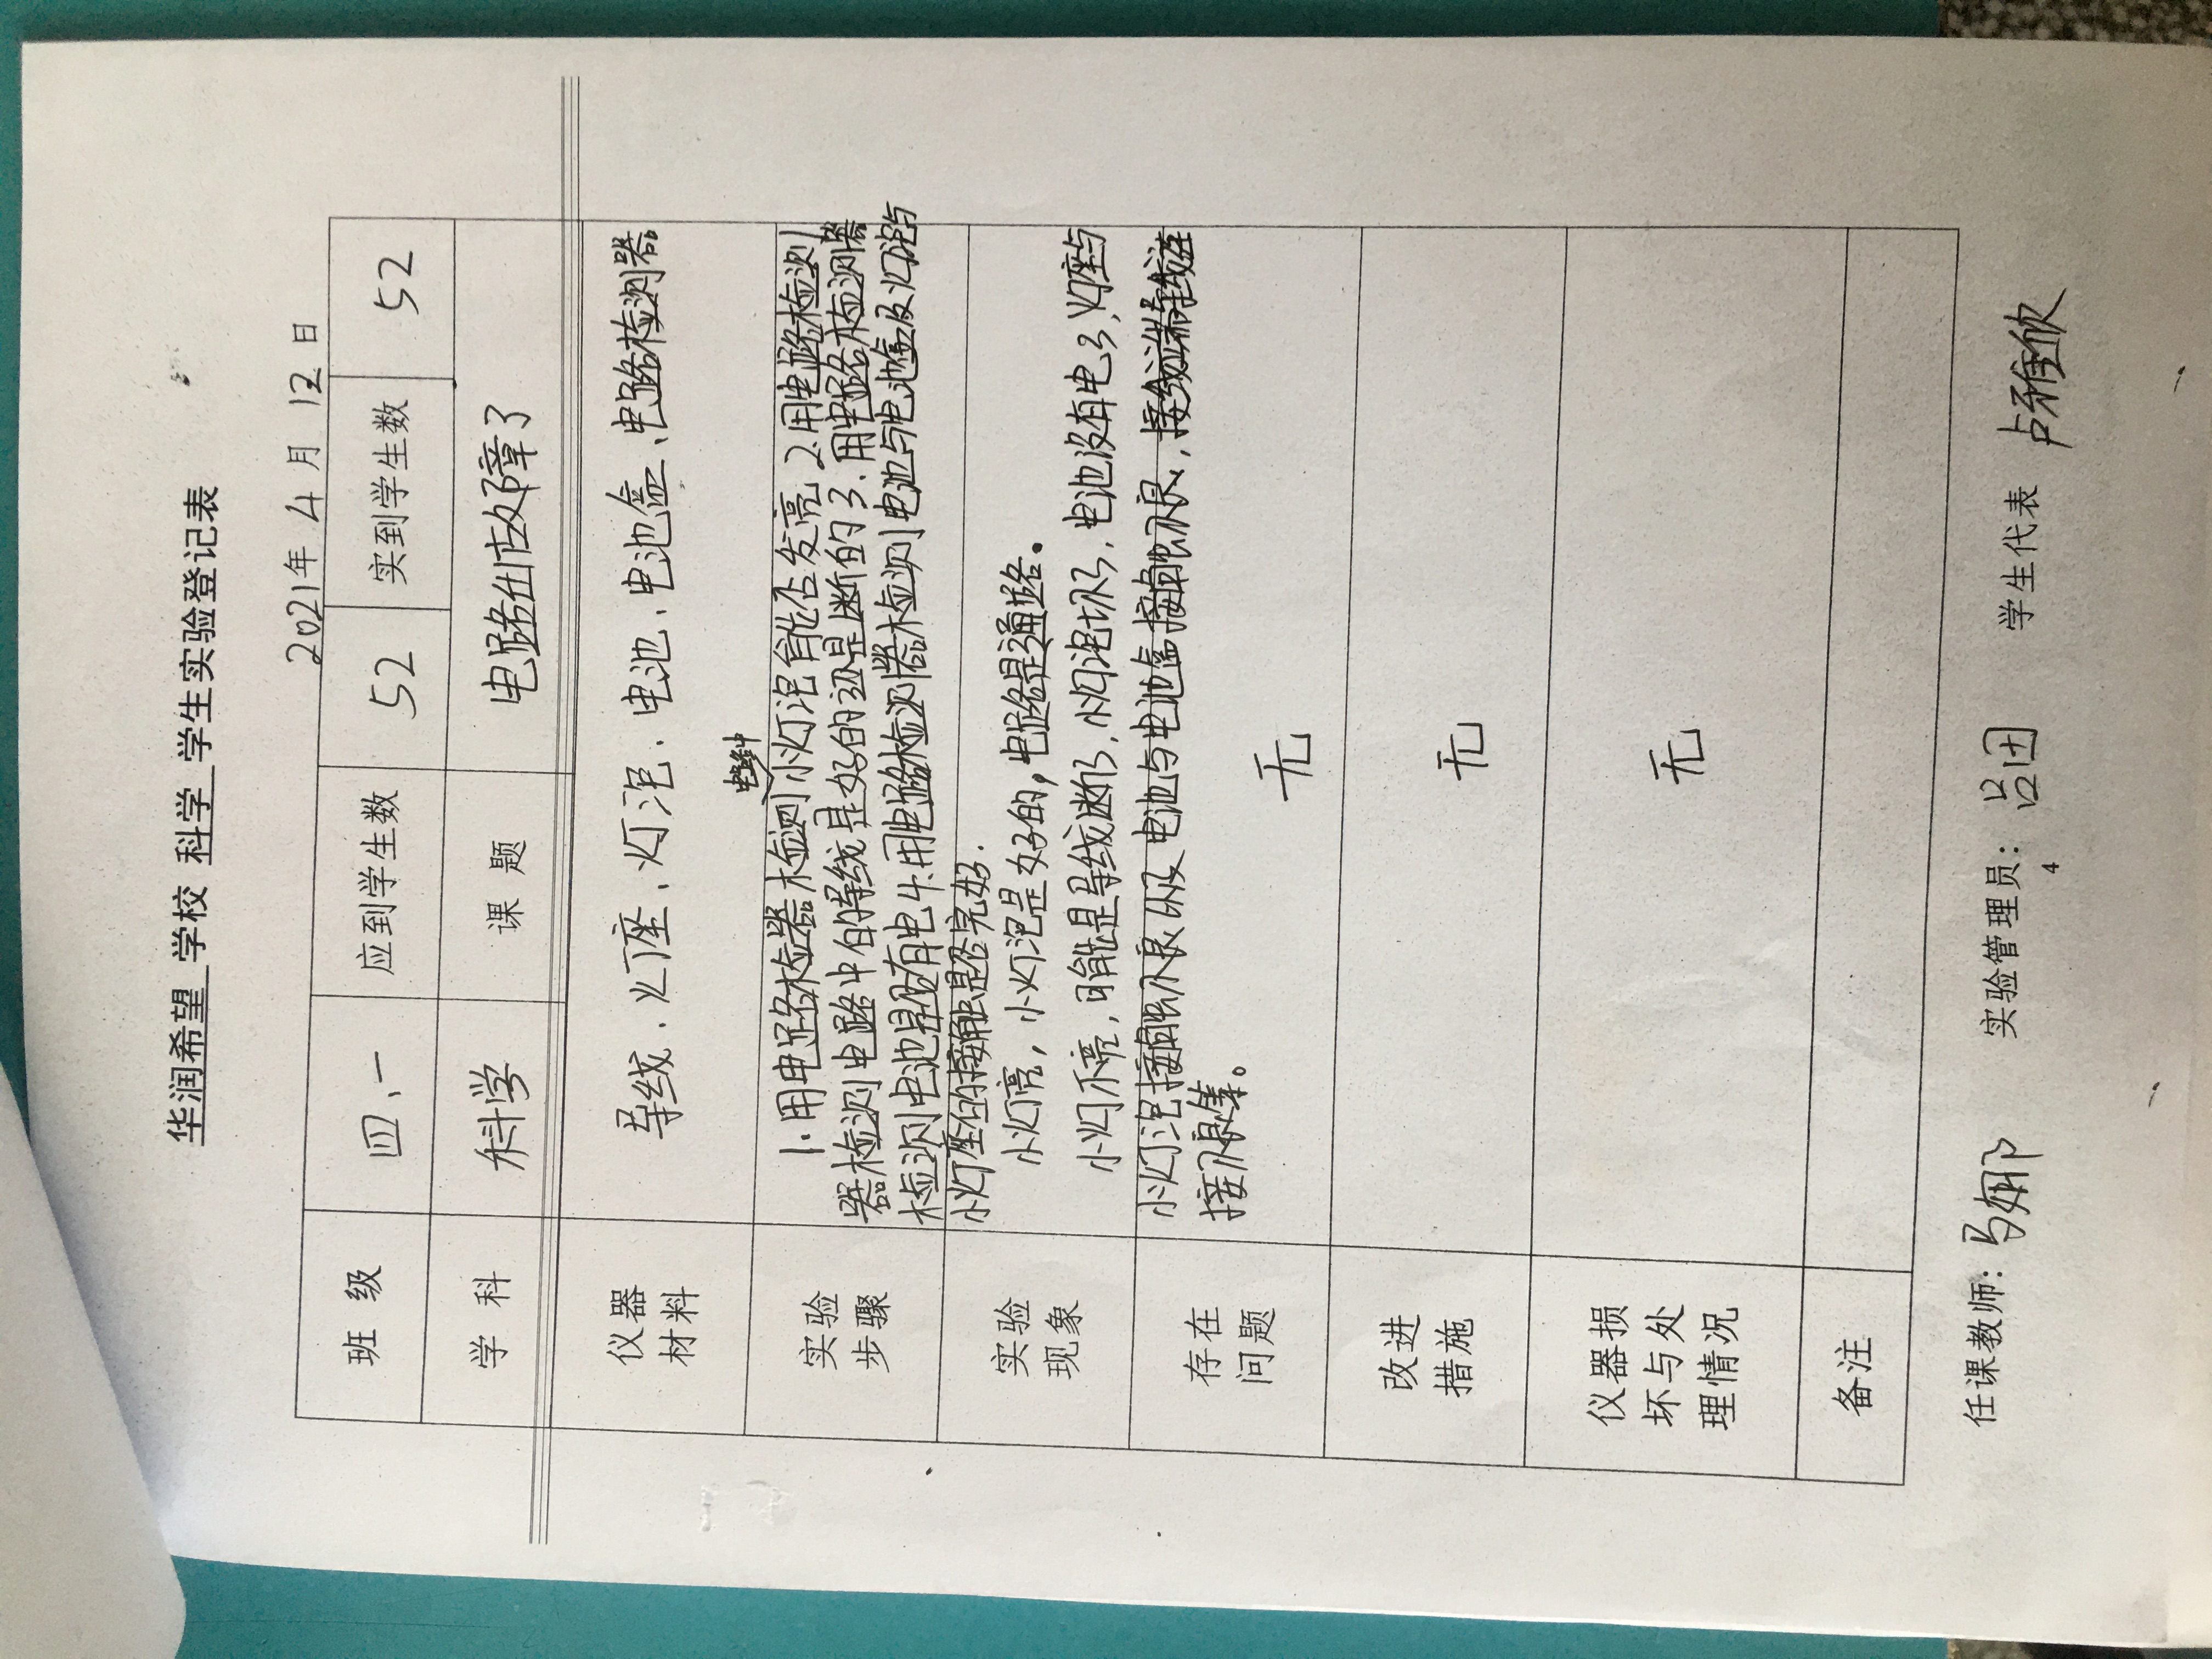 华润希望 学校 科学 学生实验登记表
2021年 4 月 12 日
班 级 四、一 应到学生数 52 实到学生数 52
学 科 科学 课 题 电路出故障了
仪器材料 导线、灯座、灯泡、电池、电池盒、电路检测器
实验步骤
电路中
1.用电路检器检测小灯泡能否发亮 2.用电路检测
器检测电路中的导线是好的还是断的 3.用电路检测器
检测电池是否有电 4.用电路检测器检测电池与电池盒及灯泡与
小灯座的接触是否完好.
实验现象
小灯亮，小灯泡是好的，电路是通路。
小灯不亮，可能是导线断了，小灯泡坏了，电池没有电了，灯座与
小灯泡接触不良以及电池与电池盒接触不良，接线端导线连
接不良等。
存在问题 无
改进措施 无
仪器损坏与处理情况 无
备注
任课教师：马娜 实验管理员：吕团 学生代表 卢雅欣
4